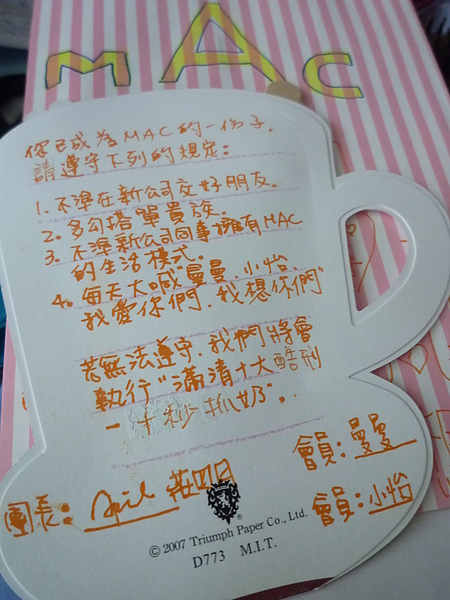 MAC
你已成為MAC的一份子.
請遵守下列的規定:
1. 不準在新公司交好朋友。
2. 多勾搭單貴族。
3. 不準新公司同事擁有MAC
的生活模式。
4. 每天大喊曼曼、小怡、
我愛你們、我想你們"
若無法遵守、我們將會
執行"滿清十大酷刑
一十秒抓奶..
團長: April
會員:曼曼
會員:小怡
© 2007 Triumph Paper Co., Ltd.
D773 M.I.T.